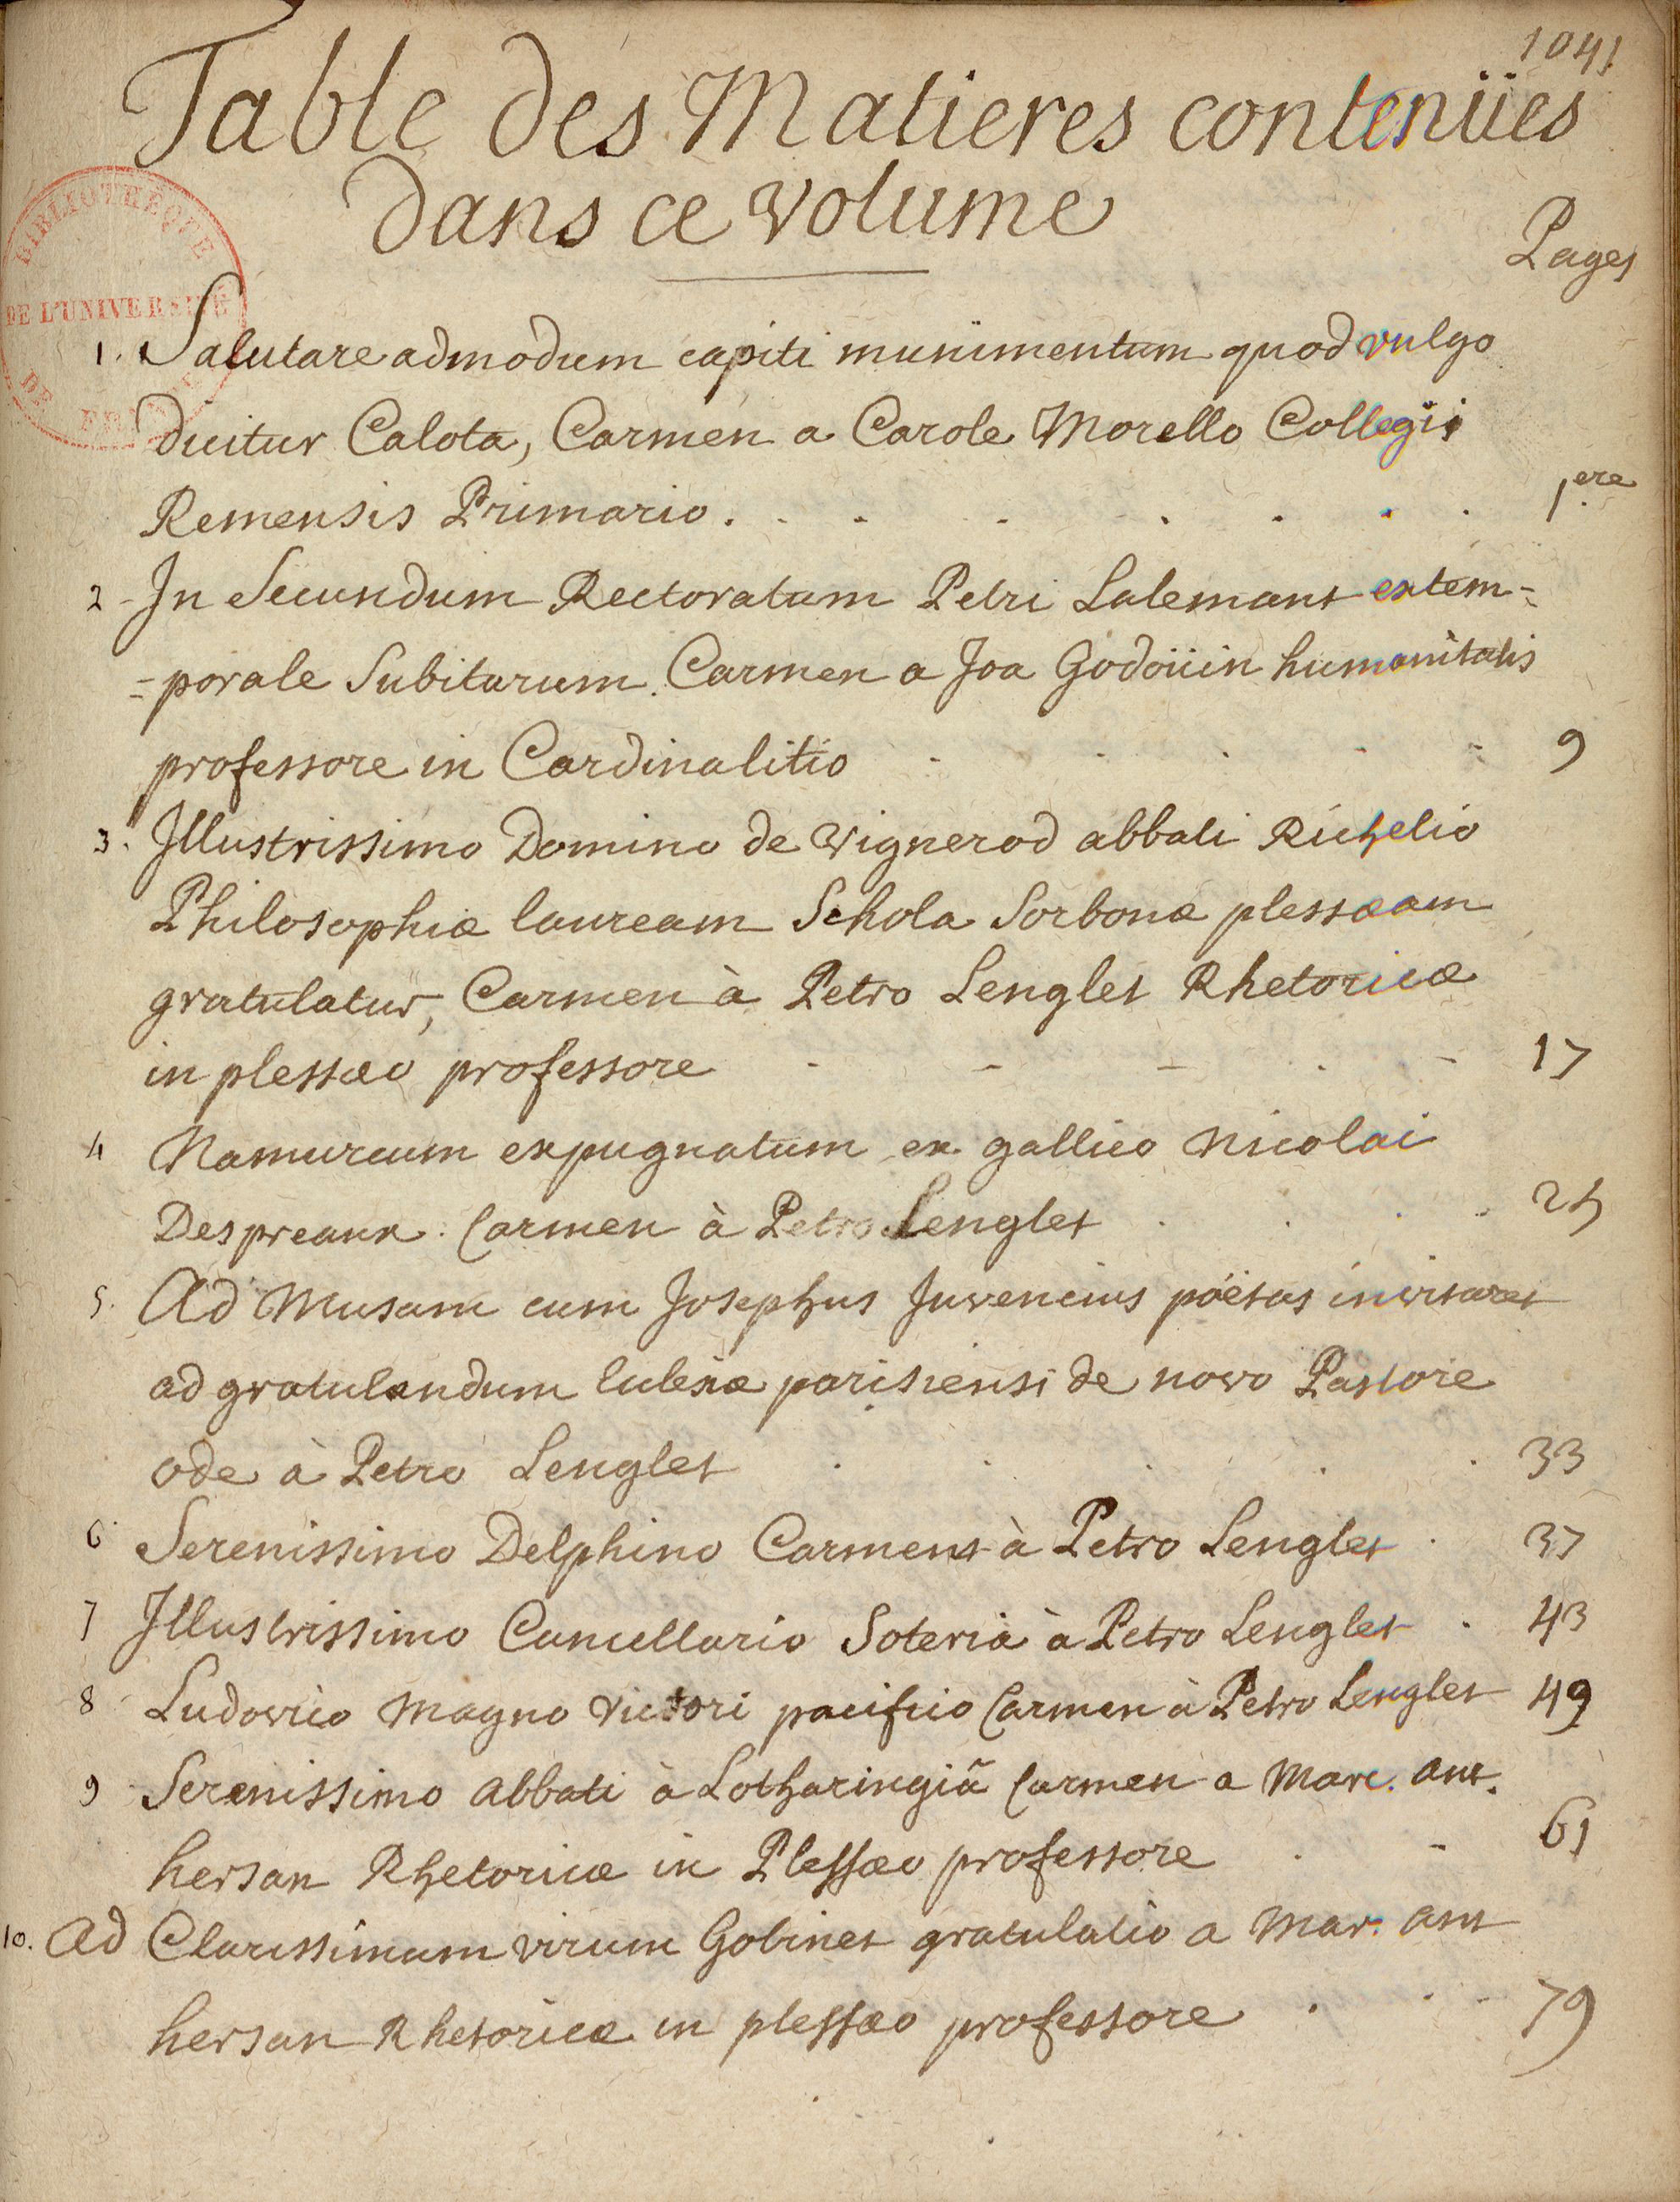 1041
Table des Matieres contenües
dans ce volume
Pages
BIBLIOTHÈQUE
DE L'UNIVERSITÉ
DE FRANCE
1. Salutare admodum capiti munimentum quod vulgo
dicitur Calota, Carmen a Carole Morello Collegii
Remensis Primario . . . . . . . . 1ere
2 - In Secundum Rectoratum Petri Lalemant extem=
=porale Subitarum. Carmen a Joa Godoüin humanitatis
professore in Cardinalitio - - - - - 9
3. Illustrissimo Domino de Vignerod abbati Richelio
Philosophiæ lauream Schola Sorbonæ plessæam
gratulatur, Carmen à Petro Lenglet Rhetoricæ
in plessæo professore - - - . - 17
4 Namurcum expugnatum ex gallico Nicolai
Despreaux. Carmen à Petro Lenglet . . . . 25
5. Ad Musam cum Josephus Juvencius poëtas invitaret
ad gratulandum luleriæ parisiensi de novo Pastore
ode à Petro Lenglet . . . . . 33
6 Serenissimo Delphino Carmen à Petro Lenglet . 37
7 Illustrissimo Cancellario Soteria à Petro Lenglet . 43
8 Ludovico Magno Victori pacifico Carmen à Petro Lenglet 49
9 Serenissimo abbati à Lotharingiâ Carmen a Marc. ant.
hersan Rhetoricæ in Plessæo professore . - 61
10. Ad Clarissimum virum Gobinet gratulatio a Mar. ant
hersan Rhetoricæ in plessæo professore . . - 79